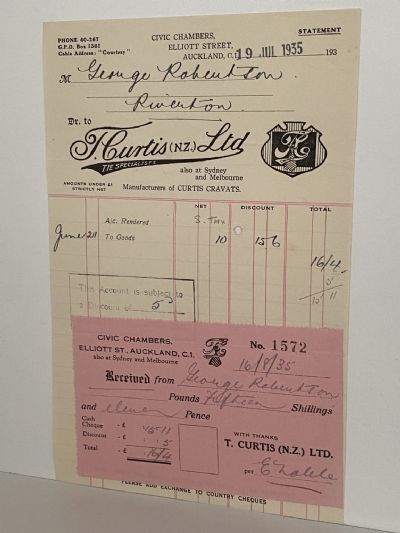 PHONE 40-267
G.P.O. Box 1361
Cable Address: "Courtesy"
CIVIC CHAMBERS,
ELLIOTT STREET,
AUCKLAND, C.1
STATEMENT
19 JUL 1935 193
M George Robertson.
Riverton.
Dr. to
T. Curtis (N.Z.) Ltd
TIE SPECIALISTS
also at Sydney
and Melbourne
AMOUNTS UNDER £1
STRICTLY NET
Manufacturers of CURTIS CRAVATS.
NET DISCOUNT TOTAL
A/c. Rendered S. Tax
June 21 To Goods 10 15 6
16/4
5
15 11
This Account is subject to
a Discount of 5
CIVIC CHAMBERS,
ELLIOTT ST., AUCKLAND, C.1.
also at Sydney and Melbourne
No. 1572
16/8/35
Received from George Robertson
Pounds Fifteen Shillings
and eleven Pence
Cash
Cheque - £ 15 11
Discount - £ 5
Total - £ 16/4
WITH THANKS
T. CURTIS (N.Z.) LTD.
per
PLEASE ADD EXCHANGE TO COUNTRY CHEQUES